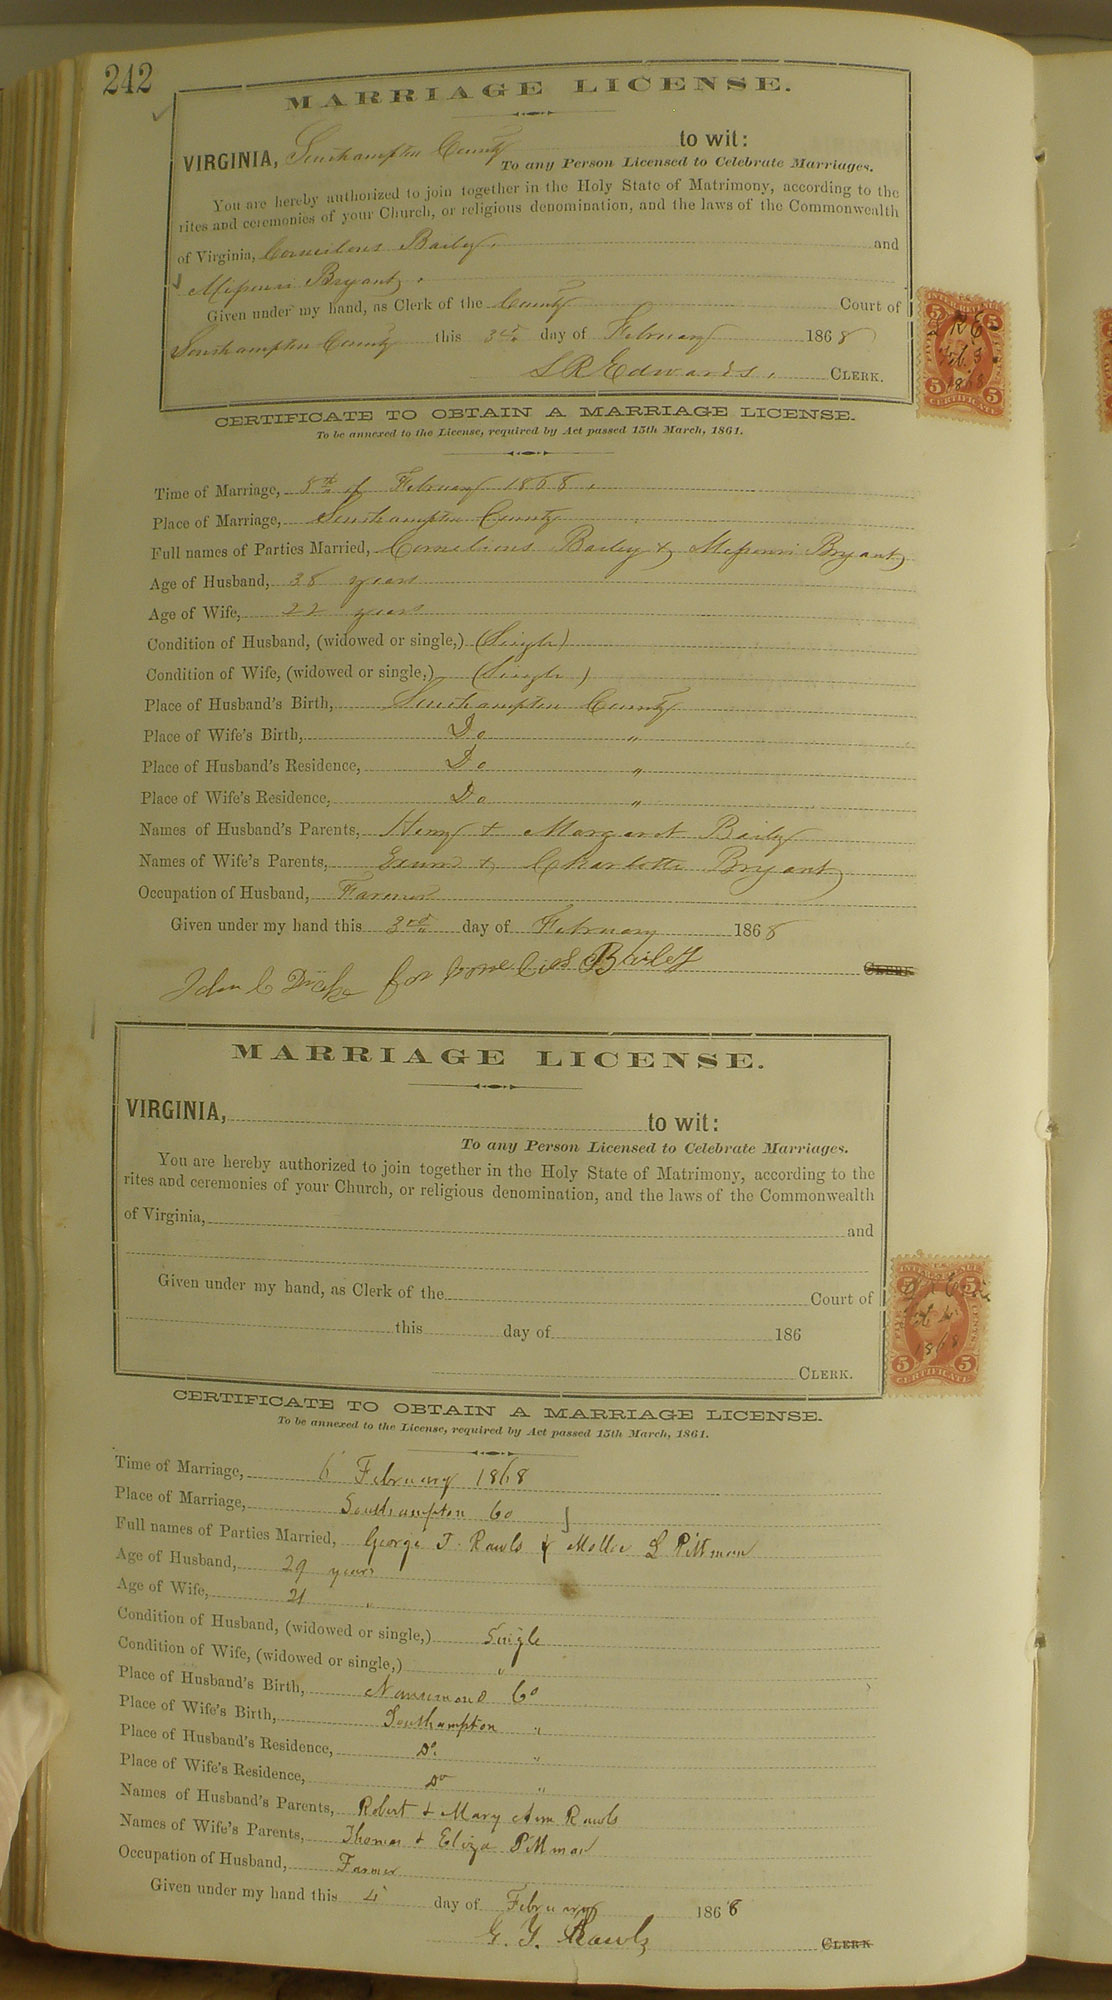 242
MARRIAGE LICENSE.
VIRGINIA, Southampton County to wit:
To any Person Licensed to Celebrate Marriages.
You are hereby authorized to join together in the Holy State of Matrimony, according to the
rites and ceremonies of your Church, or religious denomination, and the laws of the Commonwealth
of Virginia, Cornelious Baily and
Bryant
Given under my hand, as Clerk of the County Court of
Southampton County this 3rd day of February 1868
L R Edwards, CLERK.
CERTIFICATE TO OBTAIN A MARRIAGE LICENSE.
To be annexed to the License, required by Act passed 15th March, 1861.
Time of Marriage, 5th of February 1868
Place of Marriage, Southampton County
Full names of Parties Married, Cornelious Baily & Bryant
Age of Husband, years
Age of Wife, 22 years
Condition of Husband, (widowed or single,) (Single)
Condition of Wife, (widowed or single,) (Single)
Place of Husband's Birth, Southampton County
Place of Wife's Birth, Do "
Place of Husband's Residence, Do "
Place of Wife's Residence, Do "
Names of Husband's Parents, Henry & Margaret Baily
Names of Wife's Parents, & Charlotte Bryant
Occupation of Husband, Farmer
Given under my hand this 3rd day of February 1868
John C Drake for Bailey CLERK
INTER. REVENUE
5 5
R E
Feb. 3
1868
5 5
CERTIFICATE
MARRIAGE LICENSE.
VIRGINIA, to wit:
To any Person Licensed to Celebrate Marriages.
You are hereby authorized to join together in the Holy State of Matrimony, according to the
rites and ceremonies of your Church, or religious denomination, and the laws of the Commonwealth
of Virginia, and
Given under my hand, as Clerk of the Court of
this day of 186
CLERK.
INTER. REVENUE
5 5
1868
5 5
CERTIFICATE
CERTIFICATE TO OBTAIN A MARRIAGE LICENSE.
To be annexed to the License, required by Act passed 15th March, 1861.
Time of Marriage, 6 February 1868
Place of Marriage, Southampton Co
Full names of Parties Married, George T. Rawls & Mollie L Pittman
Age of Husband, 29 years
Age of Wife, 21 "
Condition of Husband, (widowed or single,) Single
Condition of Wife, (widowed or single,) "
Place of Husband's Birth, Nansemond Co
Place of Wife's Birth, Southampton "
Place of Husband's Residence, Do "
Place of Wife's Residence, Do "
Names of Husband's Parents, Robert & Mary Ann Rawls
Names of Wife's Parents, Thomas & Eliza Pittman
Occupation of Husband, Farmer
Given under my hand this 4 day of February 1868
G. T. Rawls CLERK